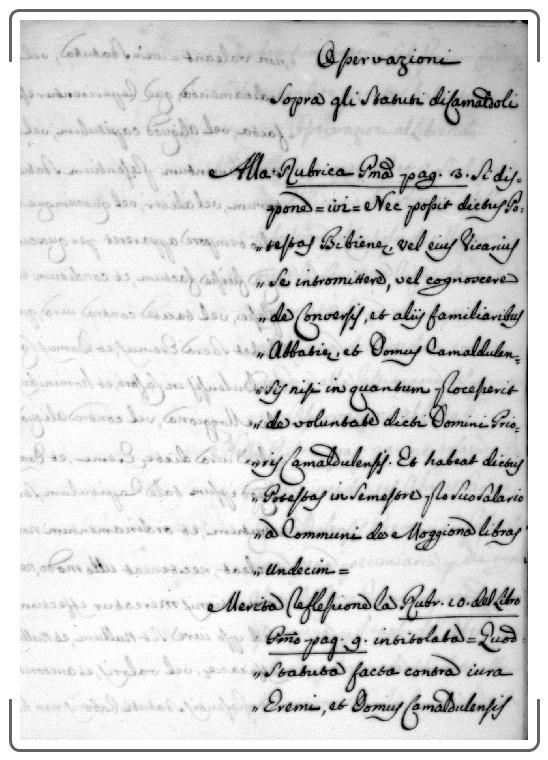 Osservazioni
Sopra gli Statuti di Camaldoli
Alla Rubrica Pma pag. 3. Si dis-
pone = ivi = Nec possit dictus Po-
„ testas Bibiene, vel eius Vicarius
„ Se intromittere, vel cognoscere
„ de Conversis, et aliis familiaribus
„ Abbatie, et Domus Camaldulen-
„ sis nisi in quantum processerit
„ de voluntate dicti Domini Prio-
„ ris Camaldulensis. Et habeat dictus
„ Potestas in Semestre pro suo Salario
„ a Communi de Moggiona libras
„ undecim =
Merita Reflessione la Rubr. 10. del Libro
Pmo pag. 9. intitolata = Quod
„ Statuta facta contra iura
„ Eremi, et Domus Camaldulensis